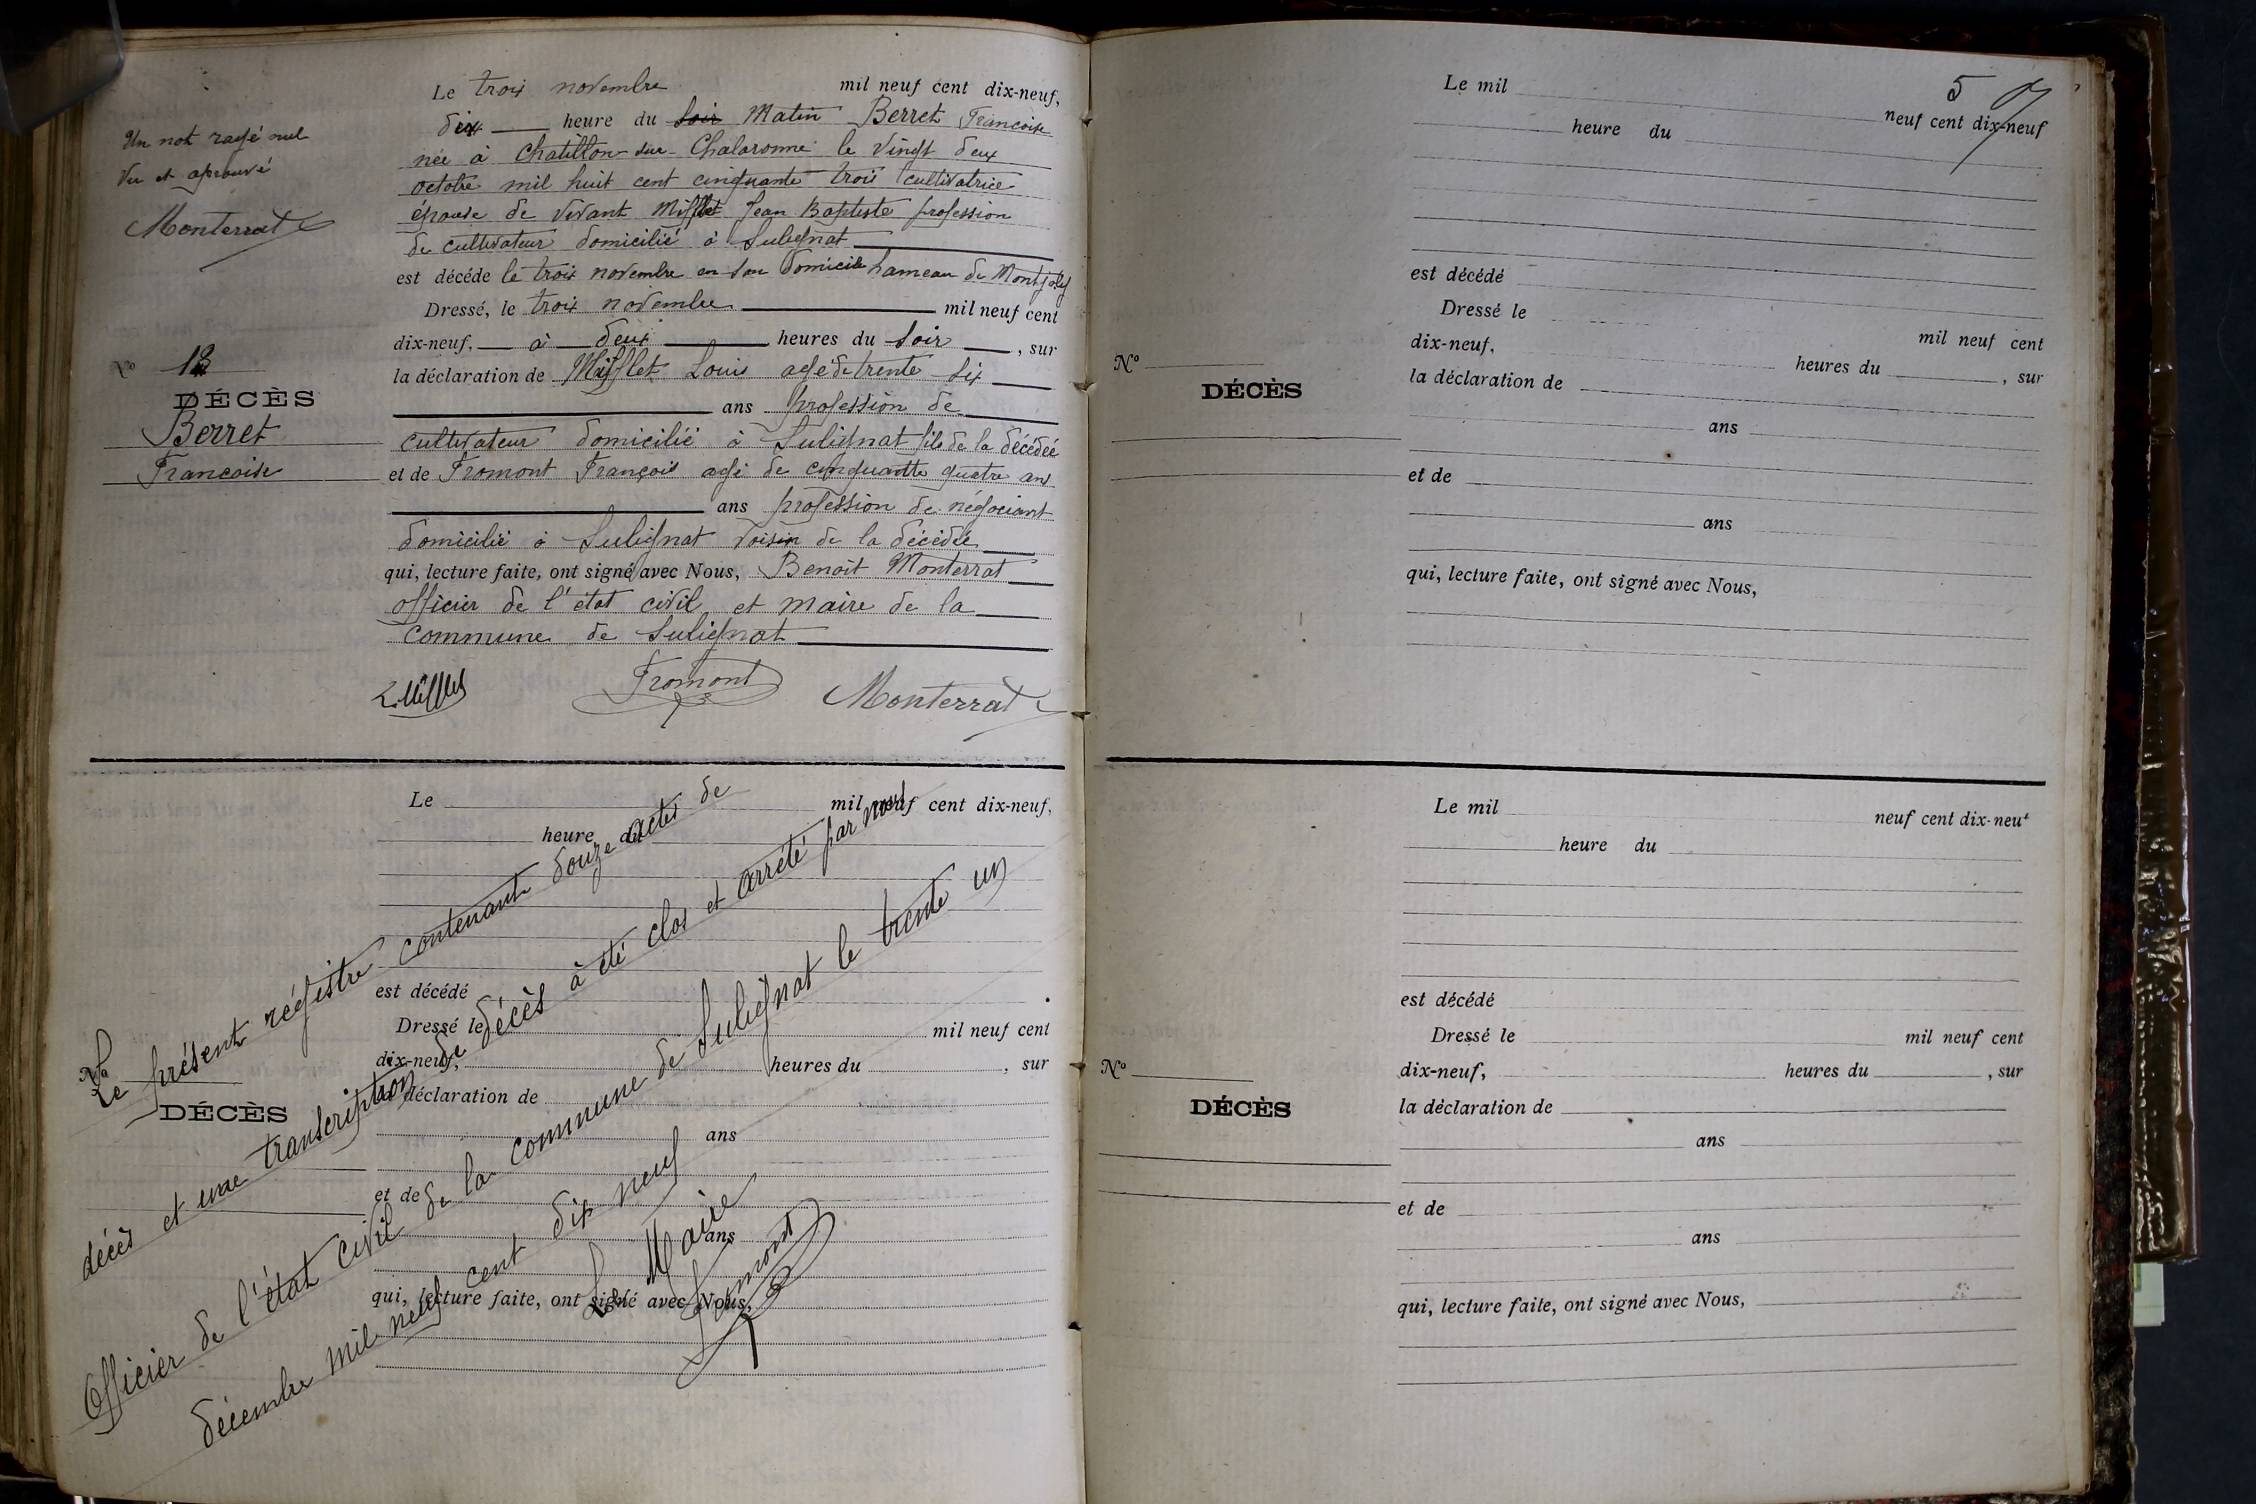 Un mot rayé nul
Vu et aprouvé
Monterrat
Le trois novembre mil neuf cent dix-neuf,
dix heure du soir Matin Berret Francoise
née à Chatillon-sur-Chalaronne le vingt deux
octobre mil huit cent cinquante trois cultivatrice
épouse de vivant Mifflet Jean Baptiste profession
de cultivateur domicilié à Sulignat
est décéde le trois novembre en son domicile hameau de Montjoly
Dressé, le trois novembre mil neuf cent
dix-neuf, à deux heures du soir, sur
la déclaration de Mifflet Louis agé de trente six
ans profession de
cultivateur domicilié à Sulignat fils de la décédée
et de Fromont François agé de cinquante quatre ans
ans profession de négociant
domicilié à Sulignat voisin de la décédée
qui, lecture faite, ont signé avec Nous, Benoit Monterrat
officier de l'état civil et maire de la
commune de Sulignat
L. Mifflet Fromont Monterrat
No 12
DÉCÈS
Berret
Francoise
Le mil neuf cent dix-neuf,
heure du
est décédé
Dressé le mil neuf cent
dix-neuf, heures du , sur
la déclaration de
ans
et de
ans
qui, lecture faite, ont signé avec Nous,
No
DÉCÈS
Le présent régistre contenant douze actes de
décès et une transcription de décès à été clos et arrété par nous
Officier de l'état civil de la commune de Sulignat le trente un
décembre mil neuf cent dix neuf
Le Maire
Fromont
5
Le mil neuf cent dix-neuf
heure du
est décédé
Dressé le mil neuf cent
dix-neuf, heures du , sur
la déclaration de
ans
et de
ans
qui, lecture faite, ont signé avec Nous,
No
DÉCÈS
Le mil neuf cent dix-neuf
heure du
est décédé
Dressé le mil neuf cent
dix-neuf, heures du , sur
la déclaration de
ans
et de
ans
qui, lecture faite, ont signé avec Nous,
No
DÉCÈS